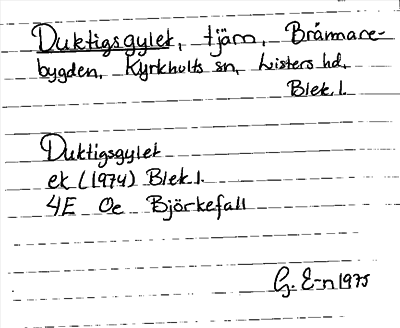 Duktigsgylet, tjärn, Bråmmare-
bygden, Kyrkhults sn, Listers hd,
Blek. l.
Duktigsgylet
ek (1974) Blek. l.
4E Oe Björkefall
G. E-n 1975